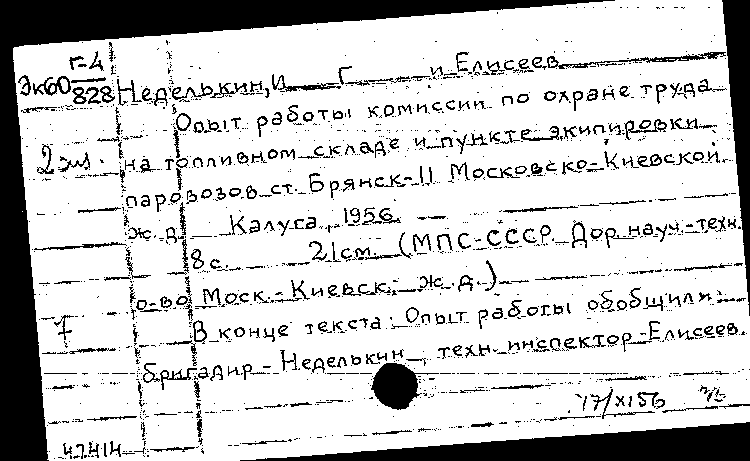 Эк60 г-4/828 Неделькин, И Г и Елисеев
Опыт работы комиссии по охране труда
2 экз. на топливном складе и пункте экипировки
паровозов ст. Брянск-II Московско-Киевской
ж.д. Калуга, 1956.
8 с. 21 см. (МПС-СССР. Дор. науч.-техн.
о-во Моск.-Киевск. ж.д.)
7 В конце текста: Опыт работы обобщили:
бригадир - Неделькин, техн. инспектор - Елисеев.
17/XI 56
47414